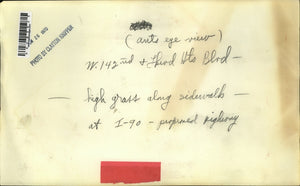 (ants eye view)
W. 142nd & Lkwd Hts Blvd —
— high grass along sidewalk —
at I-90 — proposed highway
PHOTO BY CLAYTON KNIPPER